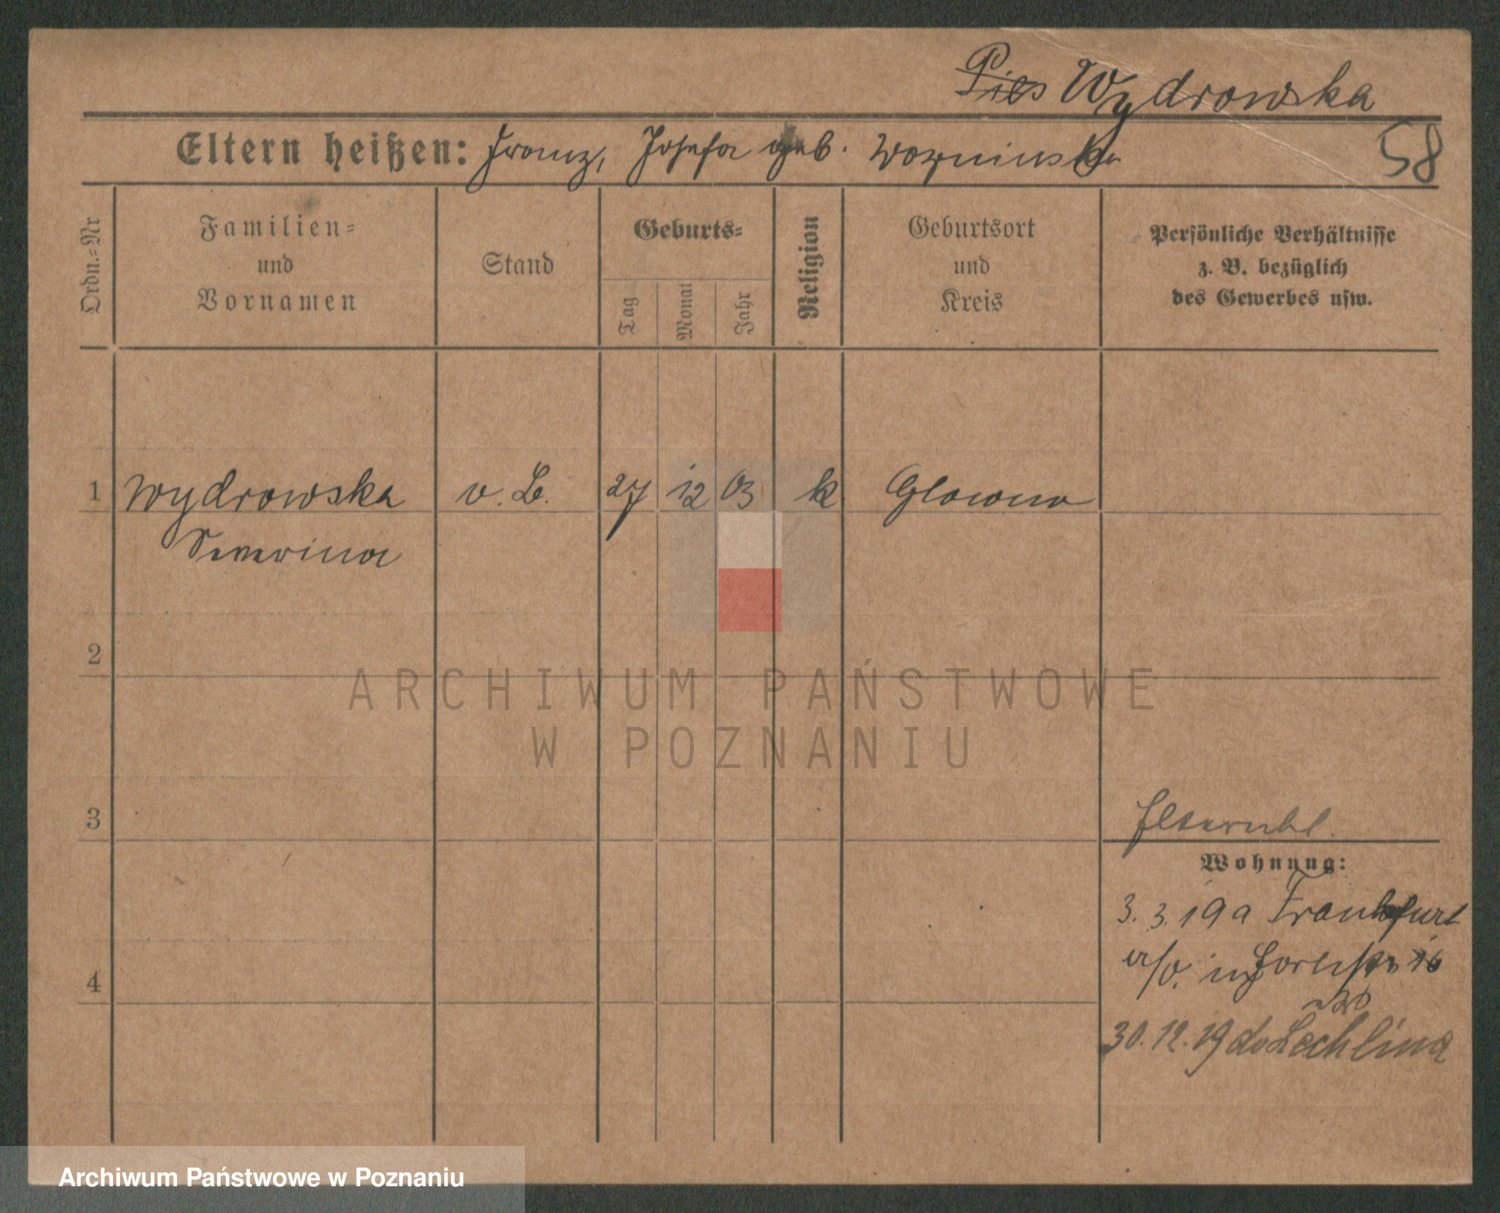 Pies Wydrowska
Eltern heißen: Franz, Josefa geb. Wozninska
58
Ordn.-Nr
Familien- und Vornamen
Stand
Geburts-
Tag
Monat
Jahr
Religion
Geburtsort und Kreis
Persönliche Verhältnisse
z. B. bezüglich
des Gewerbes usw.
1 Wydrowska v. L. 27 12 03 k Glowno
Severina
2
3
Wohnung:
3. 3. 19 a Frankfurt
a/O. 16
4
30.12.19 do Lechlina
ARCHIWUM PAŃSTWOWE
W POZNANIU
Archiwum Państwowe w Poznaniu